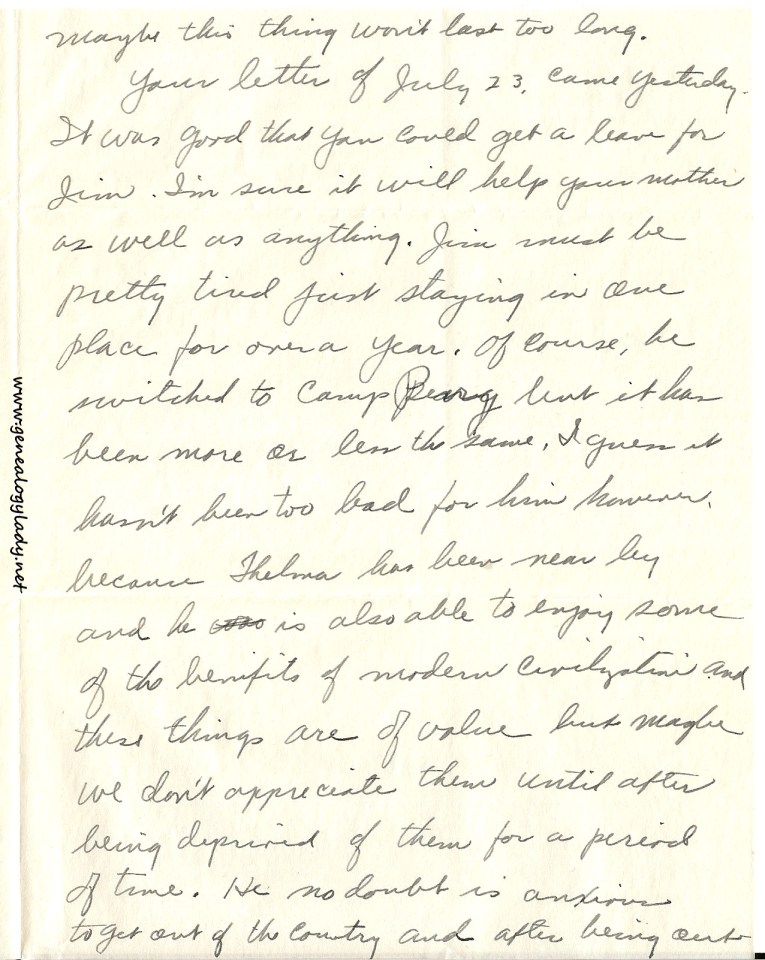 maybe this thing won't last too long.
Your letter of July 23, came yesterday.
It was good that you could get a leave for
Jim. I'm sure it will help your mother
as well as anything. Jim must be
pretty tired just staying in one
place for over a year. Of course, he
switched to Camp Peary but it has
been more or less the same. I guess it
hasn't been too bad for him however,
because Thelma has been near by
and he was is also able to enjoy some
of the benifits of modern civilization and
these things are of value but maybe
we don't appreciate them until after
being deprived of them for a period
of time. He no doubt is anxious
to get out of the country and after being out
www.genealogylady.net